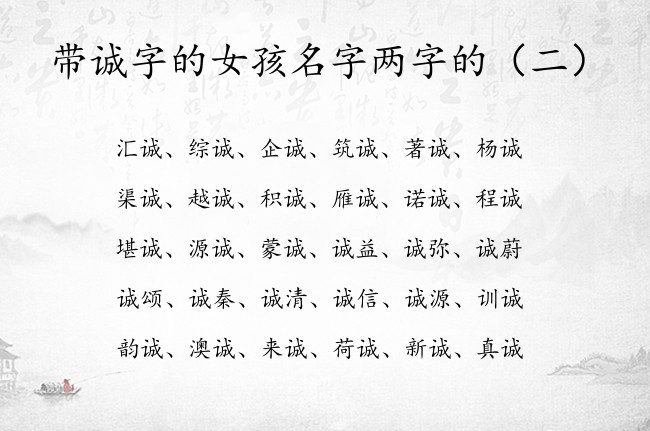 带诚字的女孩名字两字的（二）
汇诚、综诚、企诚、筑诚、著诚、杨诚
渠诚、越诚、积诚、雁诚、诺诚、程诚
堪诚、源诚、蒙诚、诚益、诚弥、诚蔚
诚颂、诚秦、诚清、诚信、诚源、训诚
韵诚、澳诚、来诚、荷诚、新诚、真诚